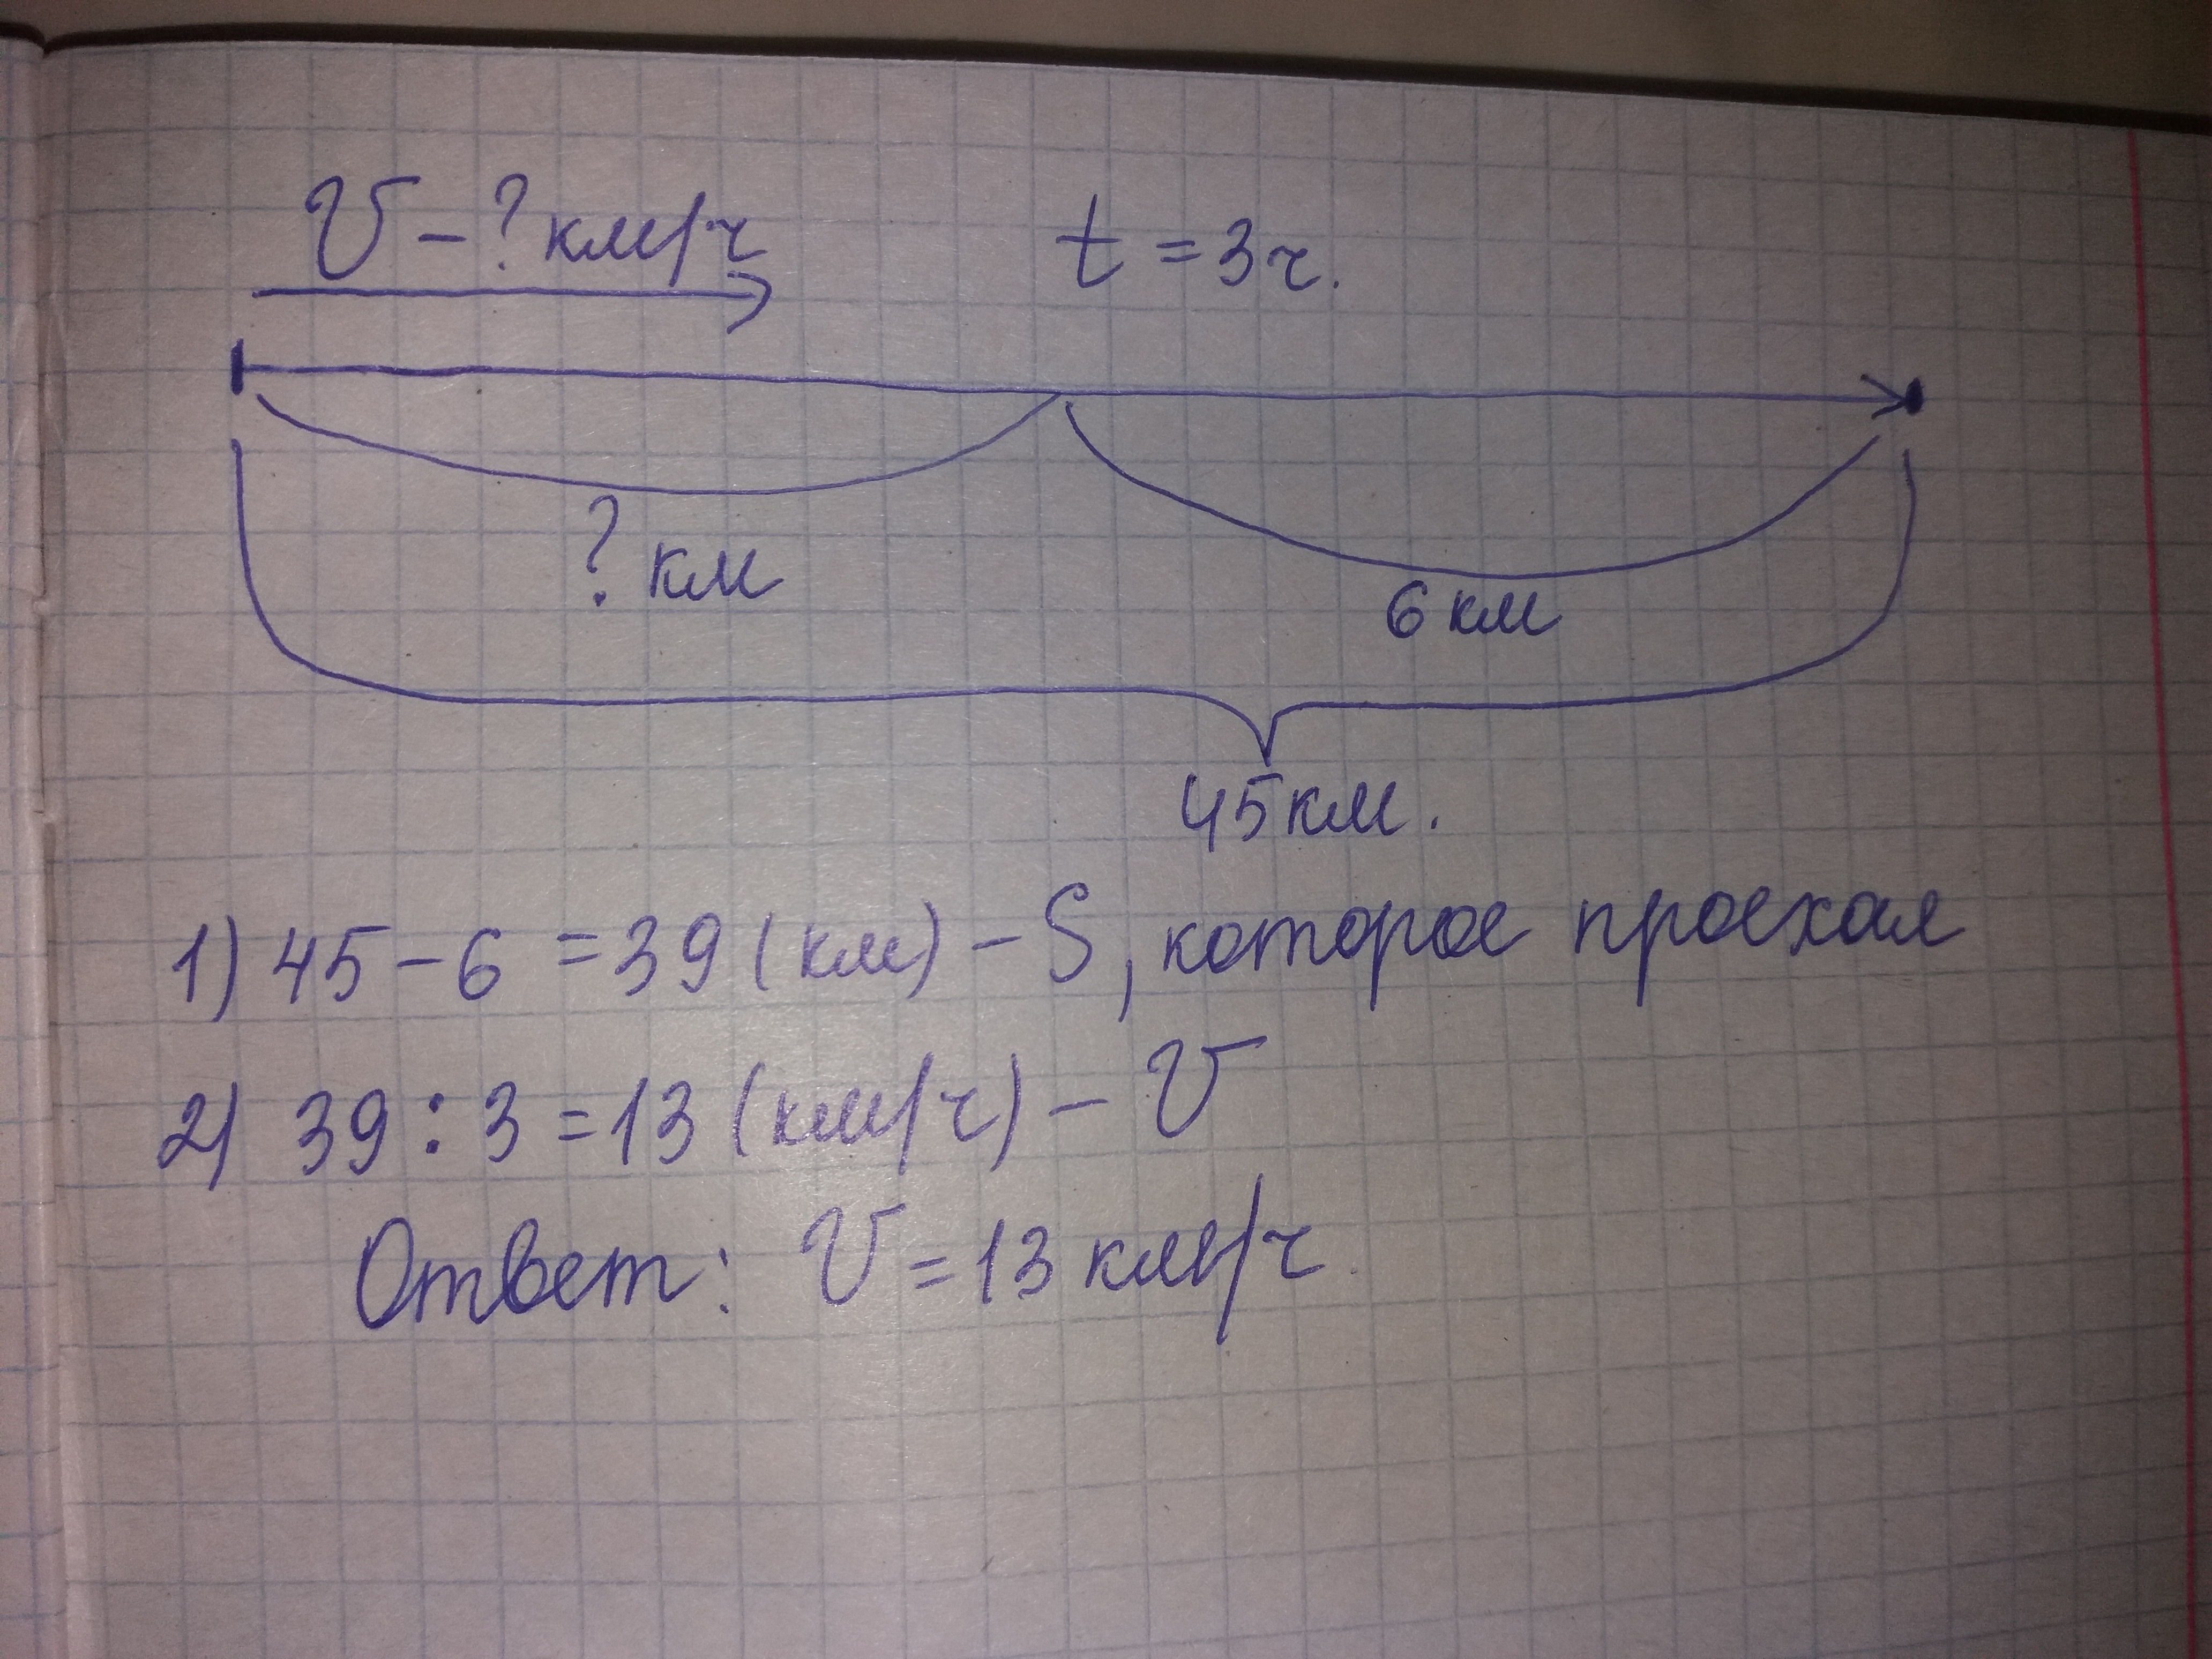 V - ? км/ч t = 3 ч.
? км
6 км
45 км.
1) 45 - 6 = 39 (км) - S, которое проехал
2) 39 : 3 = 13 (км/ч) - V
Ответ: V = 13 км/ч.